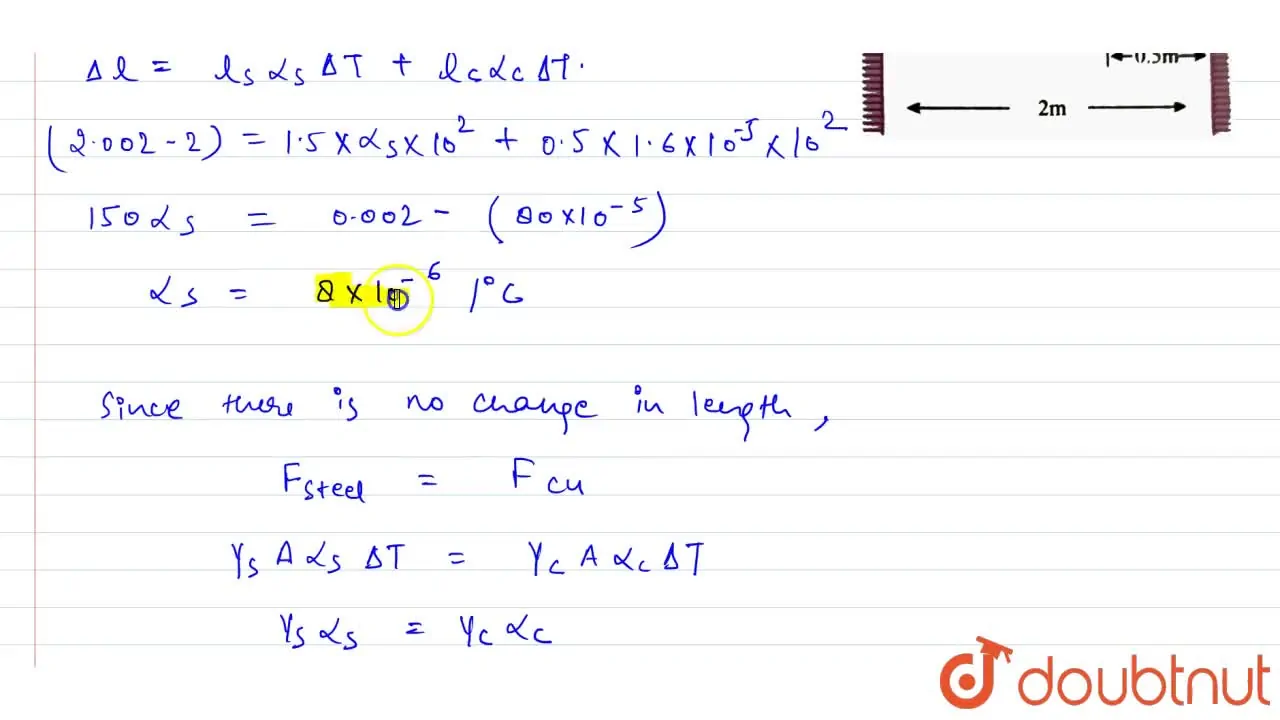 Δl = ls αs ΔT + lc αc ΔT.
0.5m
2m
(2.002 - 2) = 1.5 × αs × 10² + 0.5 × 1.6 × 10⁻⁵ × 10²
150 αs = 0.002 - (80 × 10⁻⁵)
αs = 8 × 10⁻⁶ /°C
Since there is no change in length,
Fsteel = Fcu
Ys A αs ΔT = Yc A αc ΔT
Ys αs = Yc αc
doubtnut